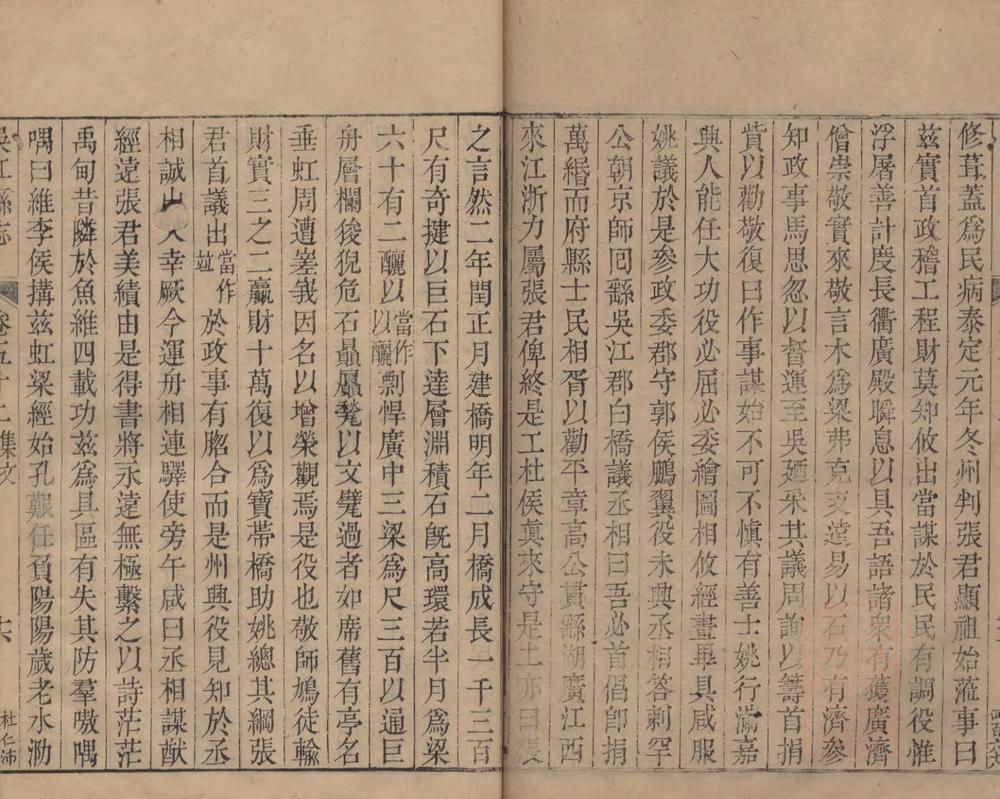 修葺蓋爲民病泰定元年冬州判張君顯祖始蒞事曰
茲實首政稽工程財莫知攸出當謀於民民有調役惟
浮屠善計度長衢廣殿瞬息以具吾語諸衆有獲廣濟
僧崇敬實來敬言木爲梁弗克支遠易以石乃有濟參
知政事馬思忽以督運至吳廼采其議周詢以籌首捐
貲以勸敬復曰作事謀始不可不愼有善士姚行滿嘉
興人能任大功役必屈必委繪圖相攸經畫畢具咸服
姚議於是參政委郡守郭侯鵬翼役未興丞相答剌罕
公朝京師囘繇吳江郡白橋議丞相曰吾必首倡卽捐
萬緡而府縣士民相胥以勸平章高公貫繇湖廣江西
來江浙力屬張君俾終是工杜侯眞來守是土亦曰張
之言然二年閏正月建橋明年二月橋成長一千三百
尺有奇揵以巨石下達層淵積石旣高環若半月爲梁
六十有二釃以當作以釃剽悍廣中三梁爲尺三百以通巨
舟層欄狻猊危石贔屭甃以文甓過者如席舊有亭名
垂虹周遭嵳峩因名以增榮觀焉是役也敬師鳩徒輸
財實三之二贏財十萬復以爲寶帶橋助姚總其綱張
君首議出當作竝於政事有脗合而是州興役見知於丞
相誠山人幸厥今運舟相連驛使旁午咸曰丞相謀猷
經遠張君美績由是得書將永遠無極繫之以詩茫茫
禹甸昔隣於魚維四載功茲爲具區有失其防羣嗷喁
喁曰維李侯搆茲虹梁經始孔艱任負陽陽歲老水泐
吳江縣志 卷五十二集文 杜仁沛